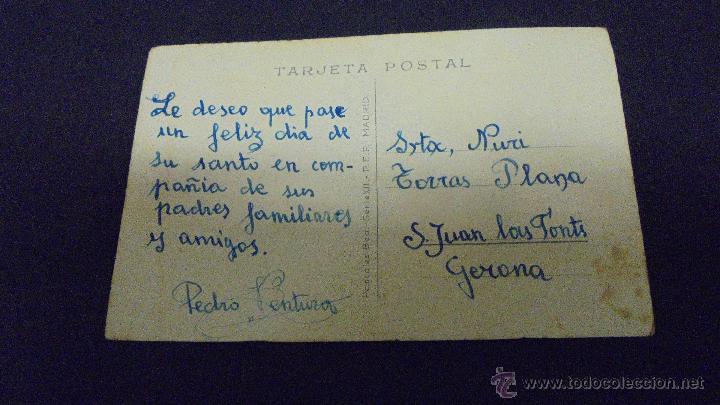 TARJETA POSTAL
Le deseo que pase
un feliz dia de
su santo en com-
pañia de sus
padres familiares
y amigos.
Pedro Ventura
P.E.R. MADRID
Srta, Nuri
Torras Plana
S. Juan las Fonts
Gerona
© www.todocoleccion.net